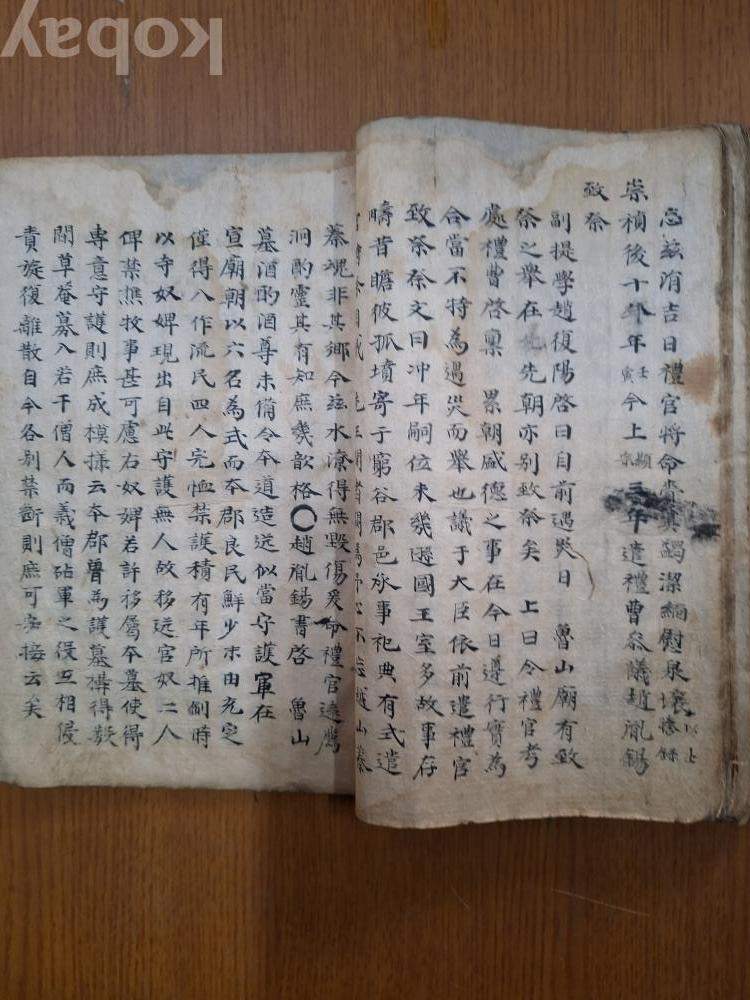 kobay
忘玆涓吉日禮官將命奠其蠲潔緬慰泉壤 以上 拔錄
崇禎後十九年 壬寅 今上 顯宗 三年遣禮曹參議趙胤錫
致祭
副提學趙復陽啓曰自前遇災日 魯山廟有致
祭之舉在先朝亦別致祭矣 上曰令禮官考
處禮曹啓稟 累朝盛德之事在今日遵行實為
合當不特為遇災而舉也議于大臣依前遣禮官
致祭祭文曰冲年嗣位未幾遜國王室多故事存
疇昔瞻彼孤墳寄于窮谷郡邑承事祀典有式遣
官 越山蓁
蓁魂非其鄉今玆水潦得無毀傷爰命禮官遠薦
洞酌靈其有知庶幾歆格〇趙胤錫書啓 魯山
墓酒酌酒尊未備令本道造送似當守護軍在
宣廟朝以六名為式而本郡良民鮮少未由充定
僅得八作流民四人完恤禁護積有年所推刷時
以寺奴婢現出自此守護無人故移送官奴二八
俾禁樵牧事甚可慮右奴婢若許移屬本墓使得
專意守護則庶成模樣云本郡曾為護墓構得數
間草庵募入若干僧人而義僧砧軍之役互相侵
責旋復離散自今各別禁斷則庶可安接云矣